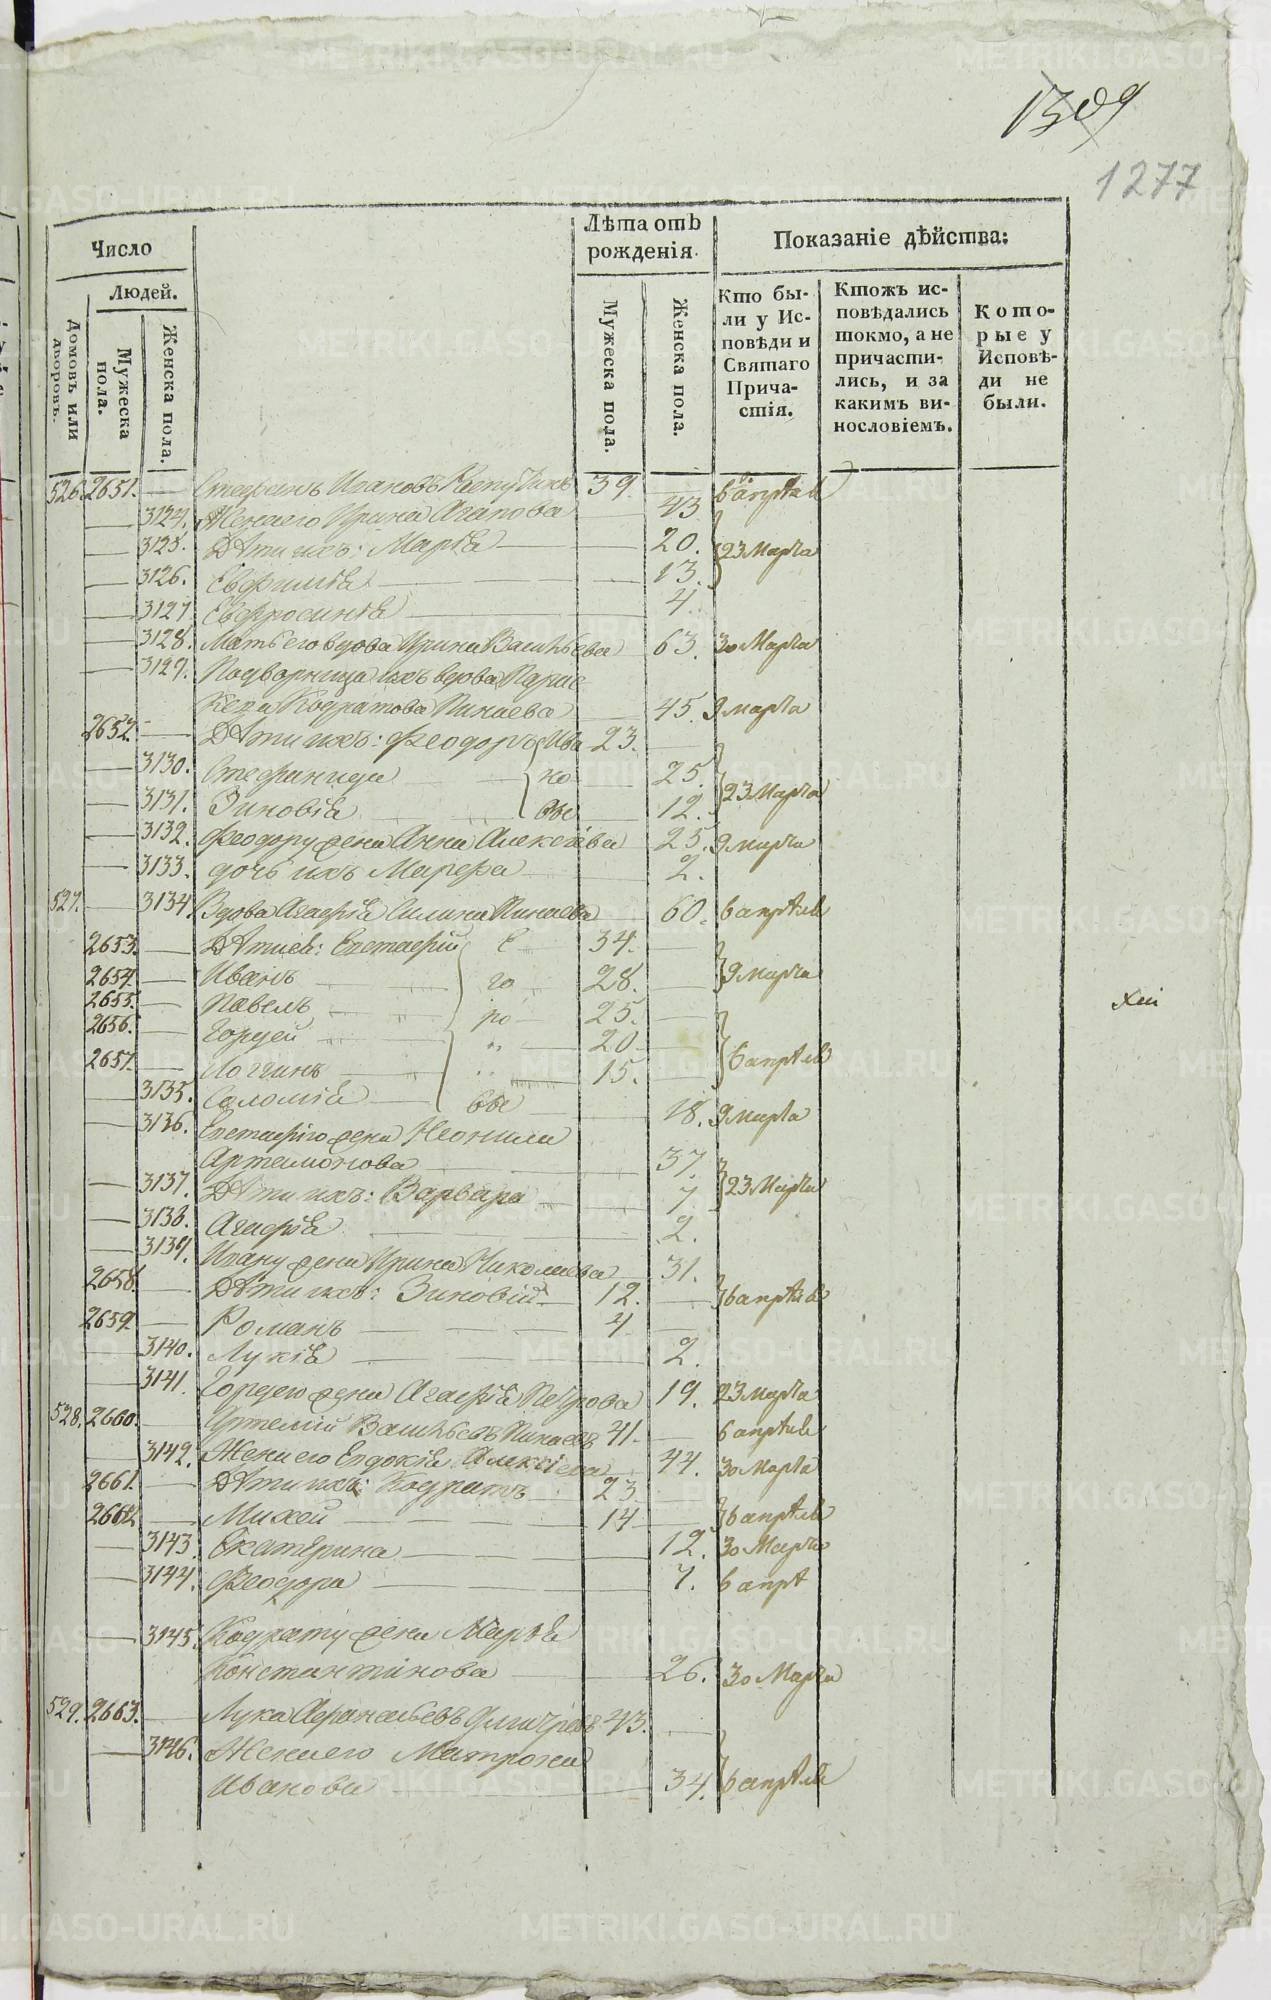 1309
1277
Число
Лѣта отъ рожденія.
Показаніе дѣйства:
Людей.
Домовъ или дворовъ.
Мужеска пола.
Женска пола.
Мужеска пола.
Женска пола.
Кто бы-
ли у Ис-
повѣди и
Святаго
Прича-
стія.
Ктожъ ис-
повѣдались
токмо, а не
причасти-
лись, и за
какимъ ви-
нословіемъ.
Кото-
рые у
Исповѣ-
ди не
были.
526. 2651. Стефанъ Ивановъ 39 6 апрѣля
3124. Жена его Ирина Агапова 43
3125. Дѣти ихъ: Марѳа 20. 23 Марта
3126. Евфимія 13.
3127 Евфросинія 4.
3128. Мать его вдова Ирина Васильева 63. 30 Марта
3129. Подворница ихъ вдова Парас-
кева Кодратова Пинаева 45. 9 марта
2652. Дѣти ихъ: Феодоръ Ива 23.
3130. Стефанида но 25.
3131. Зиновія вы 12. 23 Марта
3132. Феодору жена Анна Алексѣева 25. 9 марта
3133. дочь ихъ Марфа 2.
527. 3134 Вдова Агафія Силина Пинаева 60. 6 апрѣля
2653. Дѣти ея: Евстафій Е 34.
2654. Иванъ го 28. 9 марта
2655. Павелъ ро 25.
2656. Гордей 20
2657. Логгинъ 15. 6 апрѣля
3135. Соломія вы 18. 9 марта
3136. Евстафію жена Неонила
Артамонова 37.
3137. Дѣти ихъ: Варвара 7 23 Марта
3138. Агафія 2.
3139. Ивану жена Ирина Николаева 31.
2658. Дѣти ихъ: Зиновій 12. 6 апрѣля
2659 Романъ 4
3140. Лукія 2.
3141. Гордею жена Агафія Петрова 19. 23 марта
528. 2660. Артемій Васильевъ Пинаевъ 41. 6 апрѣля
3142. Жена его Евдокія Алексіева 44. 30 Марта
2661. Дѣти ихъ: Кодратъ 23
2662. Михей 14 6 апрѣля
3143. Екатерина 12. 30 Марта
3144. Феодора 7. 6 апрѣ
3145. Кодрату жена Марѳа
Константинова 26. 30 Марта
529. 2663. Лука Афанасьевъ 43.
3146. Жена его Матрона
Иванова 34. 6 апрѣля